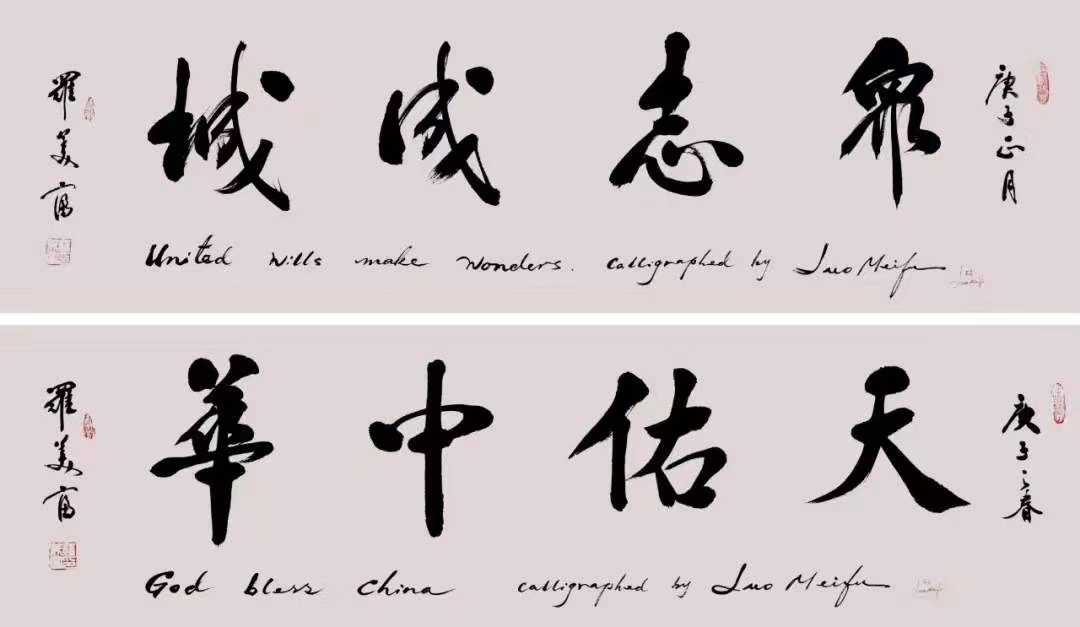 庚子正月
眾志成城
羅美富
United Wills make Wonders. Calligraphed by Luo Meifu
庚子之春
天佑中華
羅美富
God bless China calligraphed by Luo Meifu